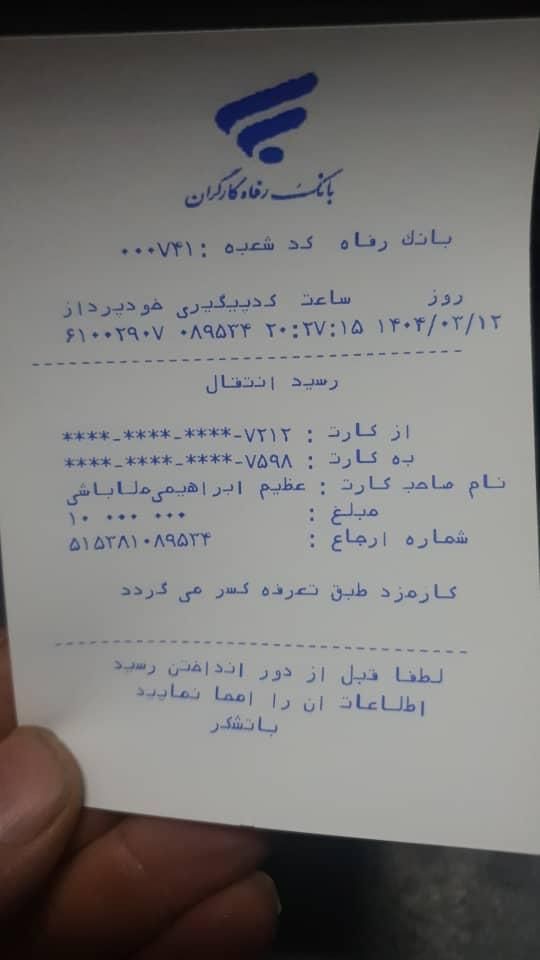 بانک رفاه کارگران
بانک رفاه کد شعبه : ۰۰۰۷۴۱
روز ساعت کدپیگیری خودپرداز
۱۴۰۴/۰۳/۱۲ ۲۰:۲۷:۱۵ ۰۸۹۵۳۴ ۶۱۰۰۲۹۰۷
رسید انتقال
از کارت : ****-****-****-۷۲۱۲
به کارت : ****-****-****-۷۵۹۸
نام صاحب کارت : عظیم ابراهیمی‌ملاباشی
مبلغ : ۱۰ ۰۰۰ ۰۰۰
شماره ارجاع : ۵۱۵۳۸۱۰۸۹۵۳۴
کارمزد طبق تعرفه کسر می گردد
لطفا قبل از دور انداختن رسید
اطلاعات ان را امحا نمایید
باتشکر